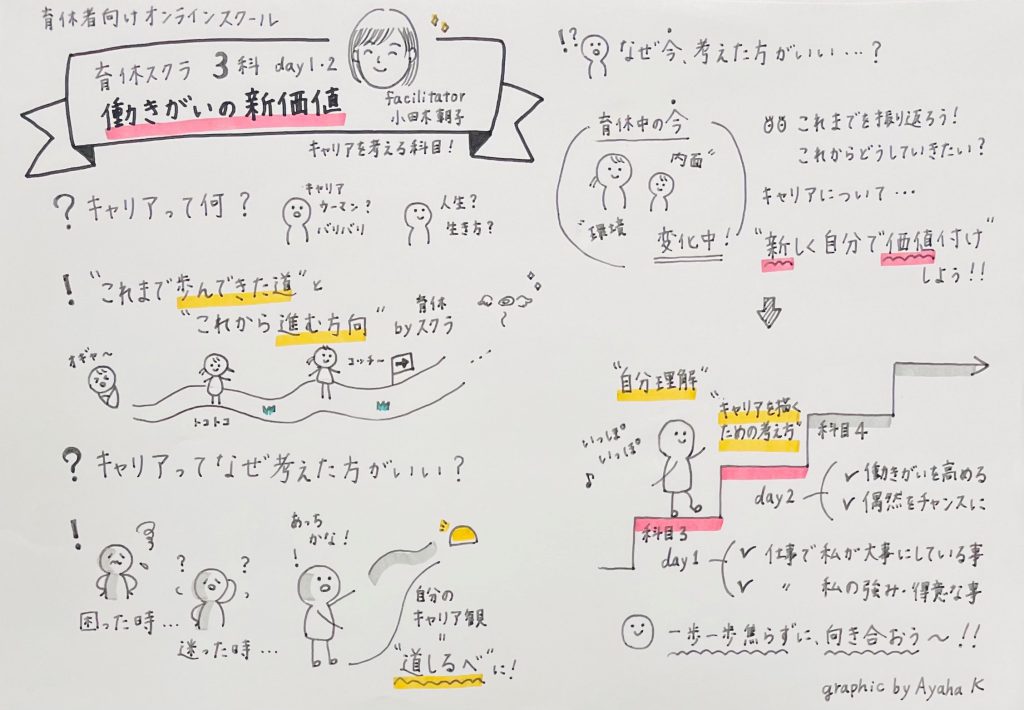 育休者向けオンラインスクール
育休スクラ 3科 day1・2
働きがいの新価値
facilitator
小田木朝子
キャリアを考える科目!
? キャリアって何?
キャリア
ウーマン?
バリバリ
人生?
生き方?
! "これまで歩んできた道"と
"これから進む方向"
育休
byスクラ
オギャ〜
トコトコ
コッチ〜
→
...
? キャリアってなぜ考えた方がいい?
!
困った時...
? ?
迷った時...
あっち
かな!
!
自分の
キャリア観
=
"道しるべ"に!
!? なぜ今、考えた方がいい...?
育休中の今
内面"
"環境
変化中!
これまでを振り返ろう!
これからどうしていきたい?
キャリアについて...
"新しく自分で価値付け"
しよう!!
"自分理解"
"キャリアを描く
ための考え方"
いっぽ
いっぽ
♪
科目4
day2
✓ 働きがいを高める
✓ 偶然をチャンスに
科目3
day1
✓ 仕事で私が大事にしている事
✓ 〃 私の強み・得意な事
一歩一歩焦らずに、向き合おう〜!!
graphic by Ayaha K